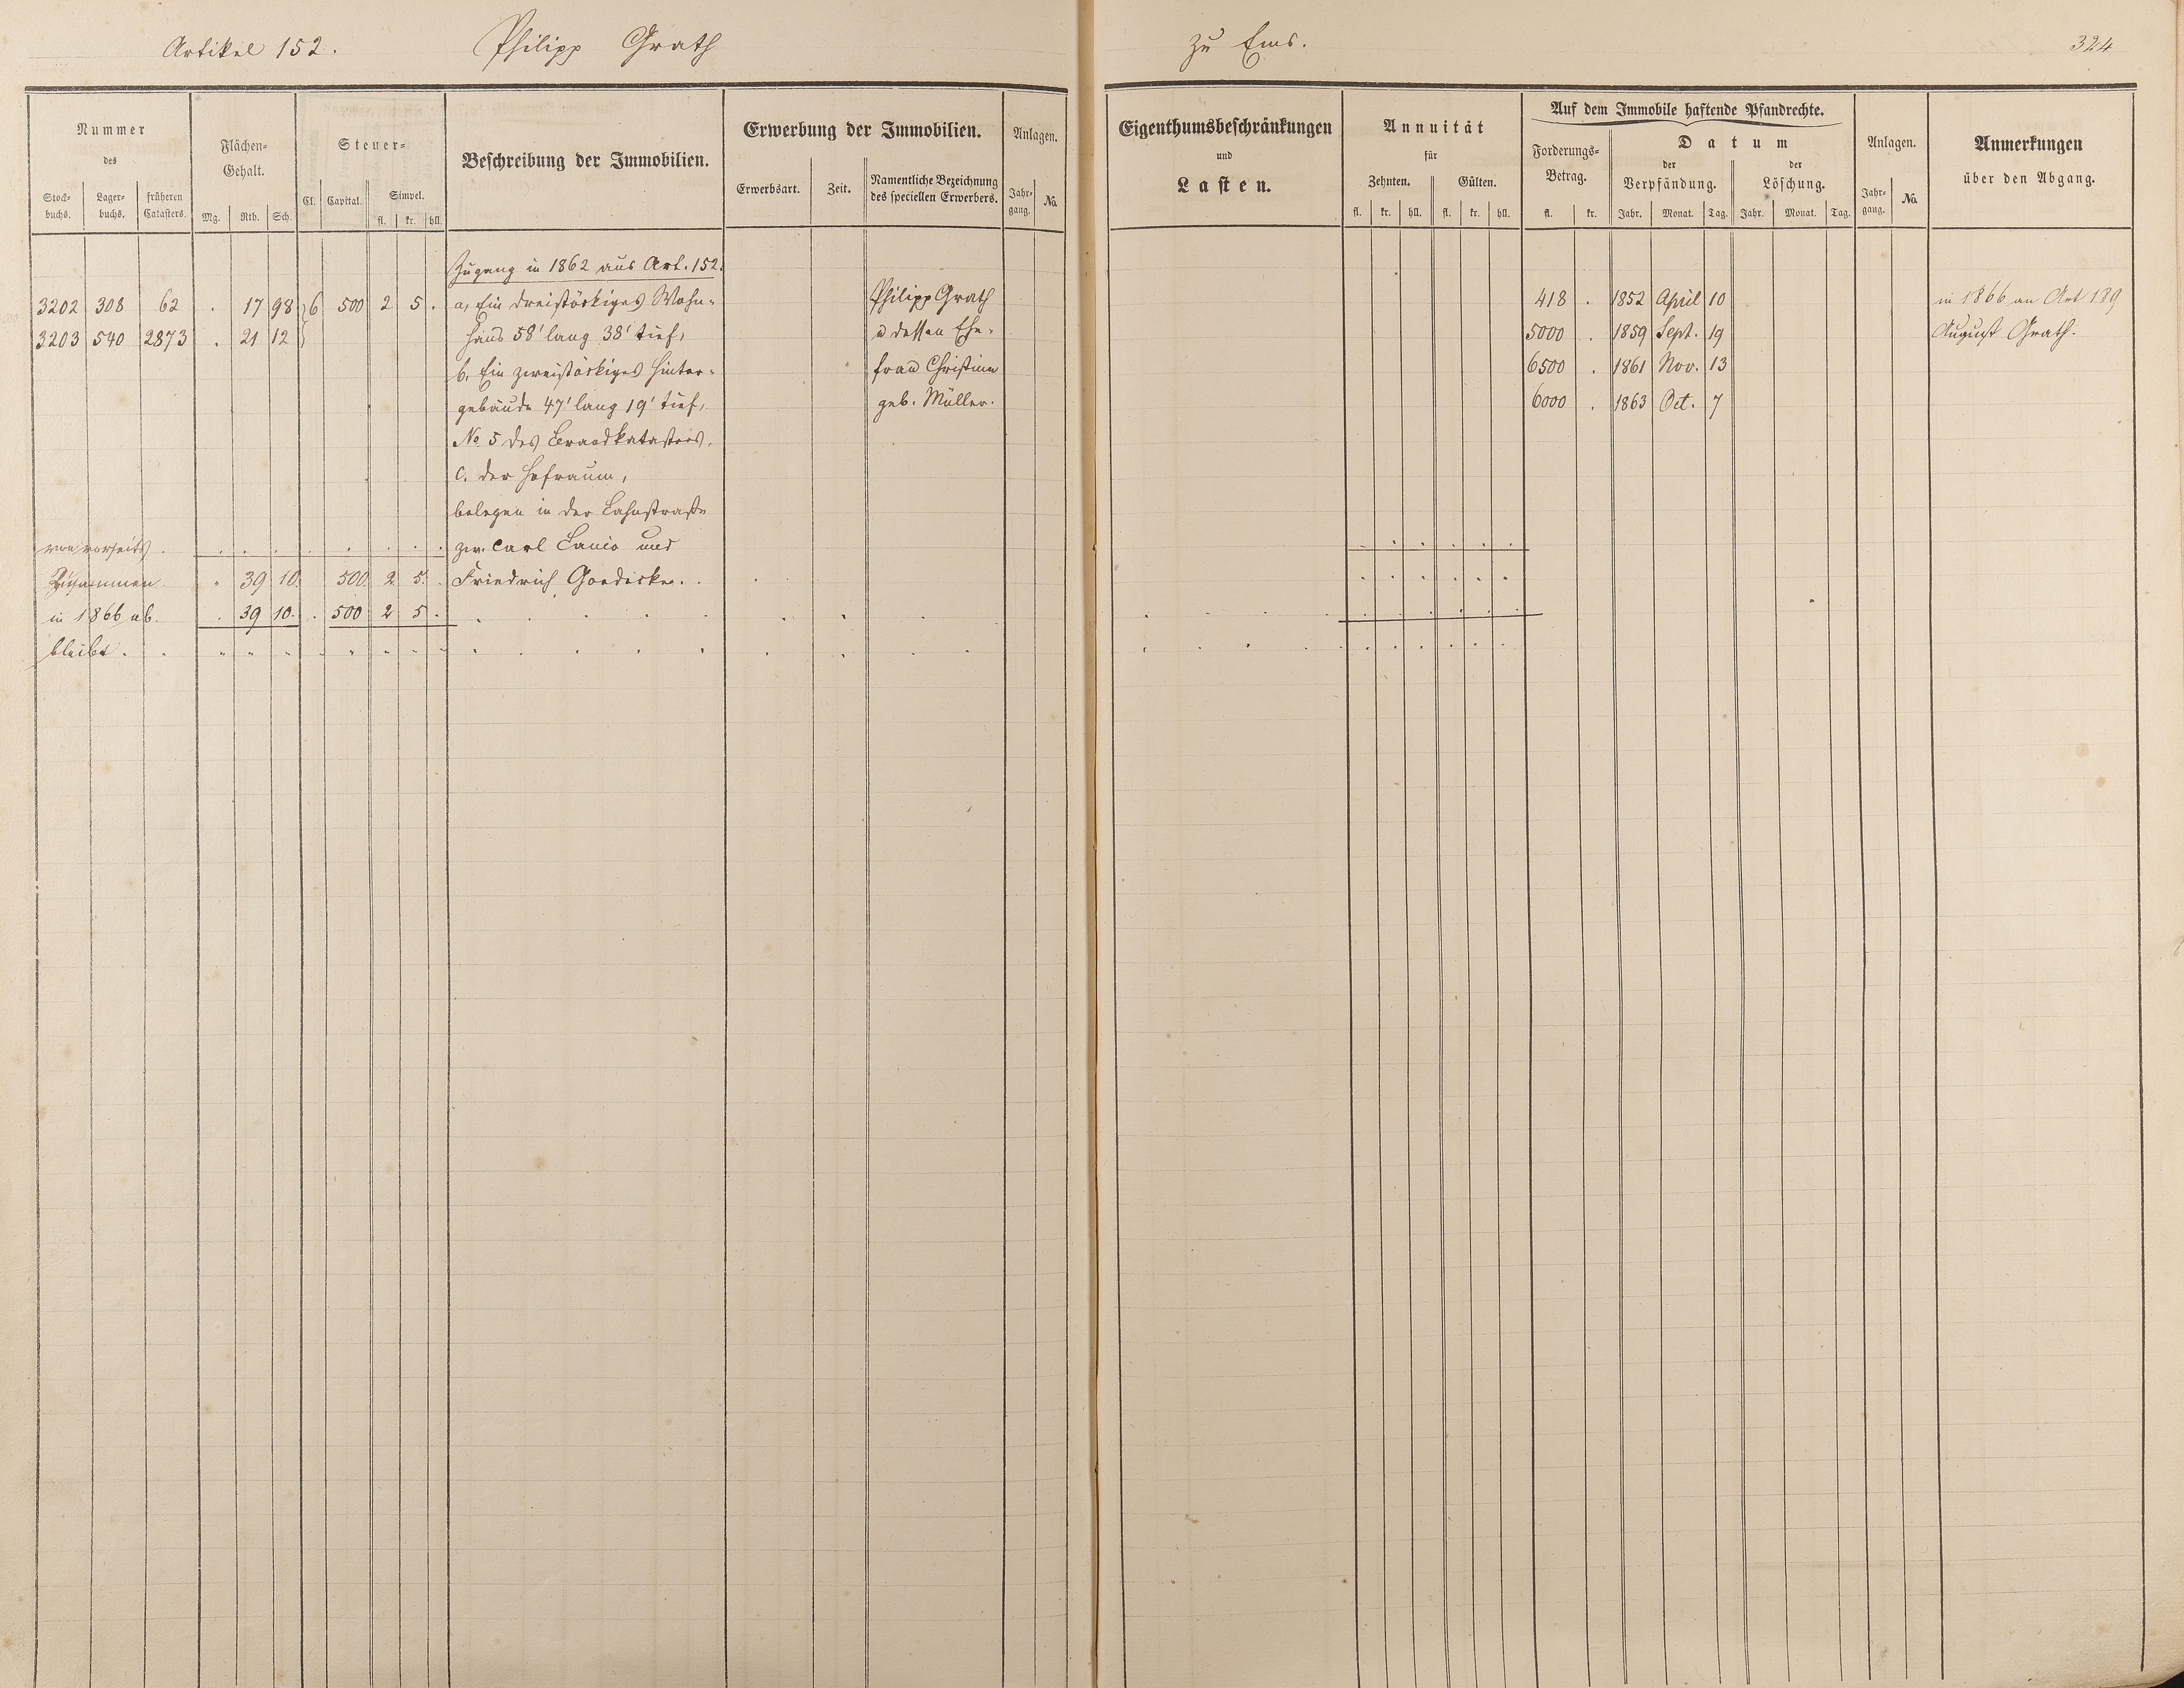 Artikel 152. Philipp Grath zu Ems. 324
Nummer des
Stock-buchs. Lager-buchs. früheren Catasters.
Flächen-Gehalt.
Mg. Rth. Sch.
Steuer-
Cl. Capital. Simpel.
fl. kr. hll.
Beschreibung der Immobilien.
Erwerbung der Immobilien.
Erwerbsart. Zeit. Namentliche Bezeichnung des speciellen Erwerbers.
Anlagen.
Jahr-gang. No.
Eigenthumsbeschränkungen
und
Lasten.
Annuität
für
Zehnten. Gülten.
fl. kr. hll. fl. kr. hll.
Auf dem Immobile haftende Pfandrechte.
Forderungs-Betrag.
fl. kr.
Datum
der Verpfändung. der Löschung.
Jahr. Monat. Tag. Jahr. Monat. Tag.
Anlagen.
Jahr-gang. No.
Anmerkungen
über den Abgang.
Zugang in 1862 aus Art. 152.
3202 308 62 . 17 98 } 6 500 2 5 . a, Ein dreistöckiges Wohn- Philipp Grath 418 . 1852 April 10 in 1866 an Art 189
3203 540 2873 . 21 12 } haus 58' lang 38' tief, u dessen Ehe- 5000 . 1859 Sept. 19 August Grath.
b. Ein zweistöckiges Hinter- frau Christine 6500 . 1861 Nov. 13
gebäude 47' lang 19' tief, geb. Müller. 6000 . 1863 Oct. 7
No 5 des Brandkatasters,
c. der Hofraum,
belegen in der Lahnstraße
von vorseits . zw. Carl und
Zusammen . 39 10. 500 2 5. Friedrich Goedecke.
in 1866 ab. . 39 10. . 500 2 5 .
bleibt .